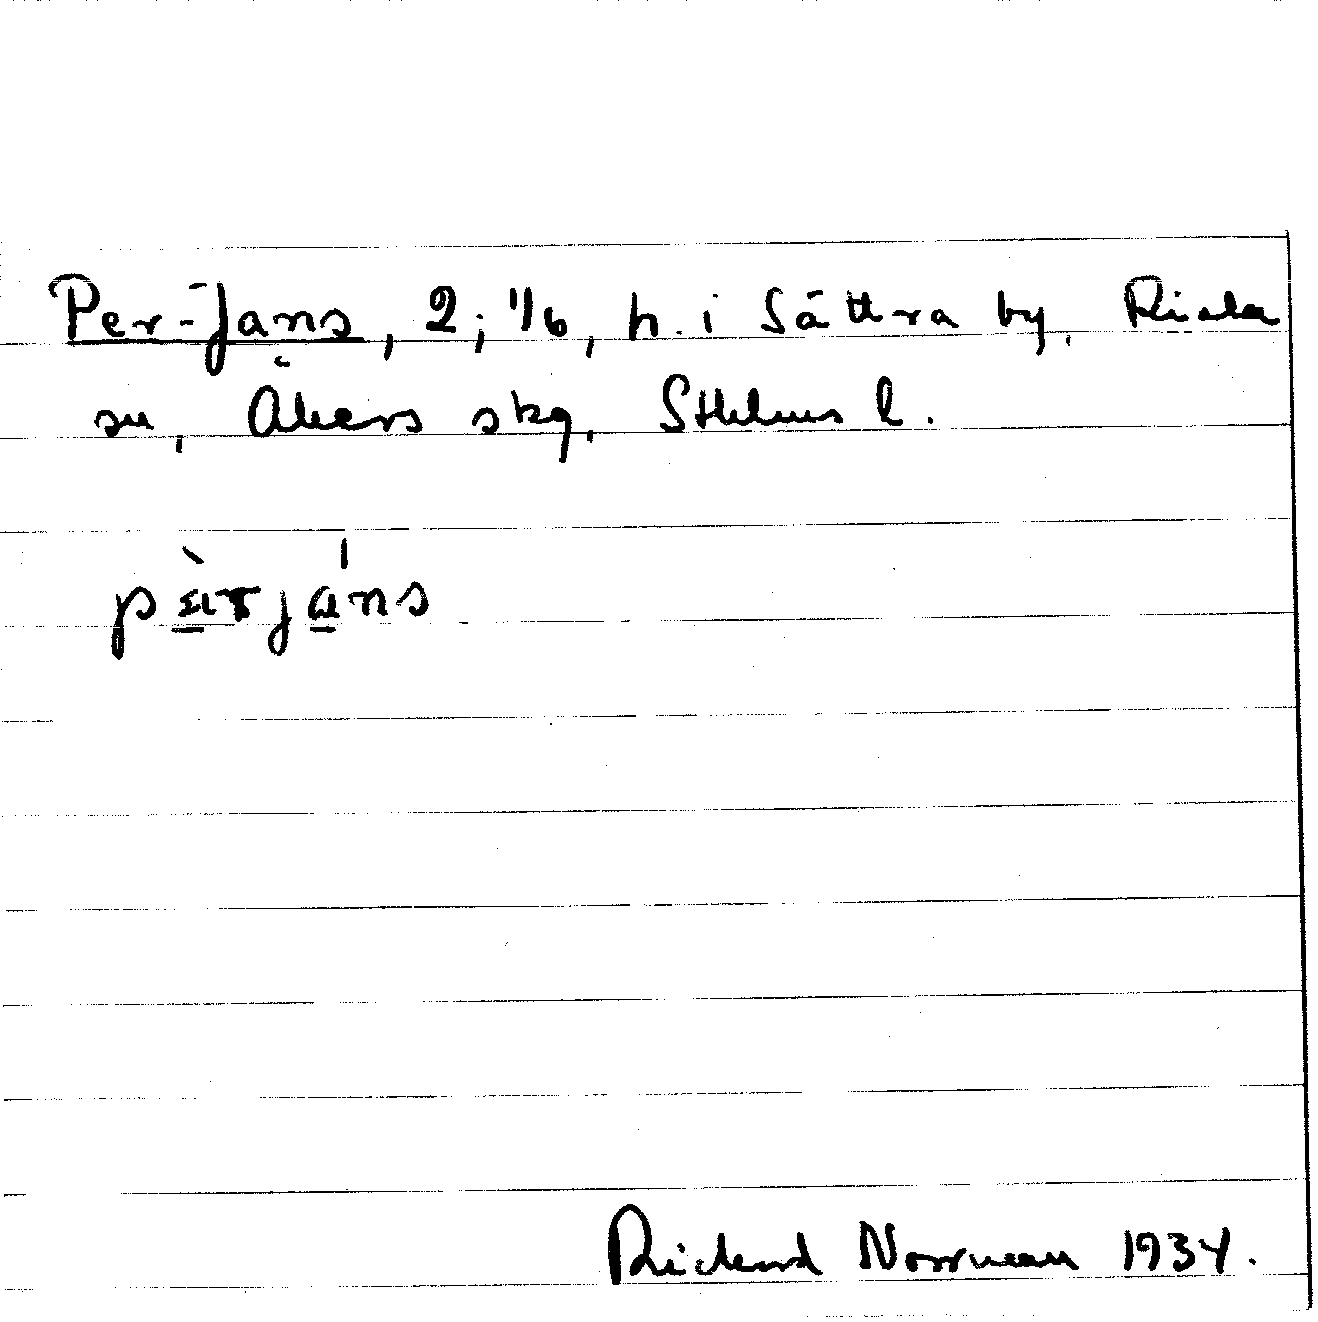 Per-Jans, 2; 1/6, h. i Såttra by, Riala
sn, Åkers skg, Sthlms l.
pɛ̀ɩrjáns
Rickard Norrman 1934.